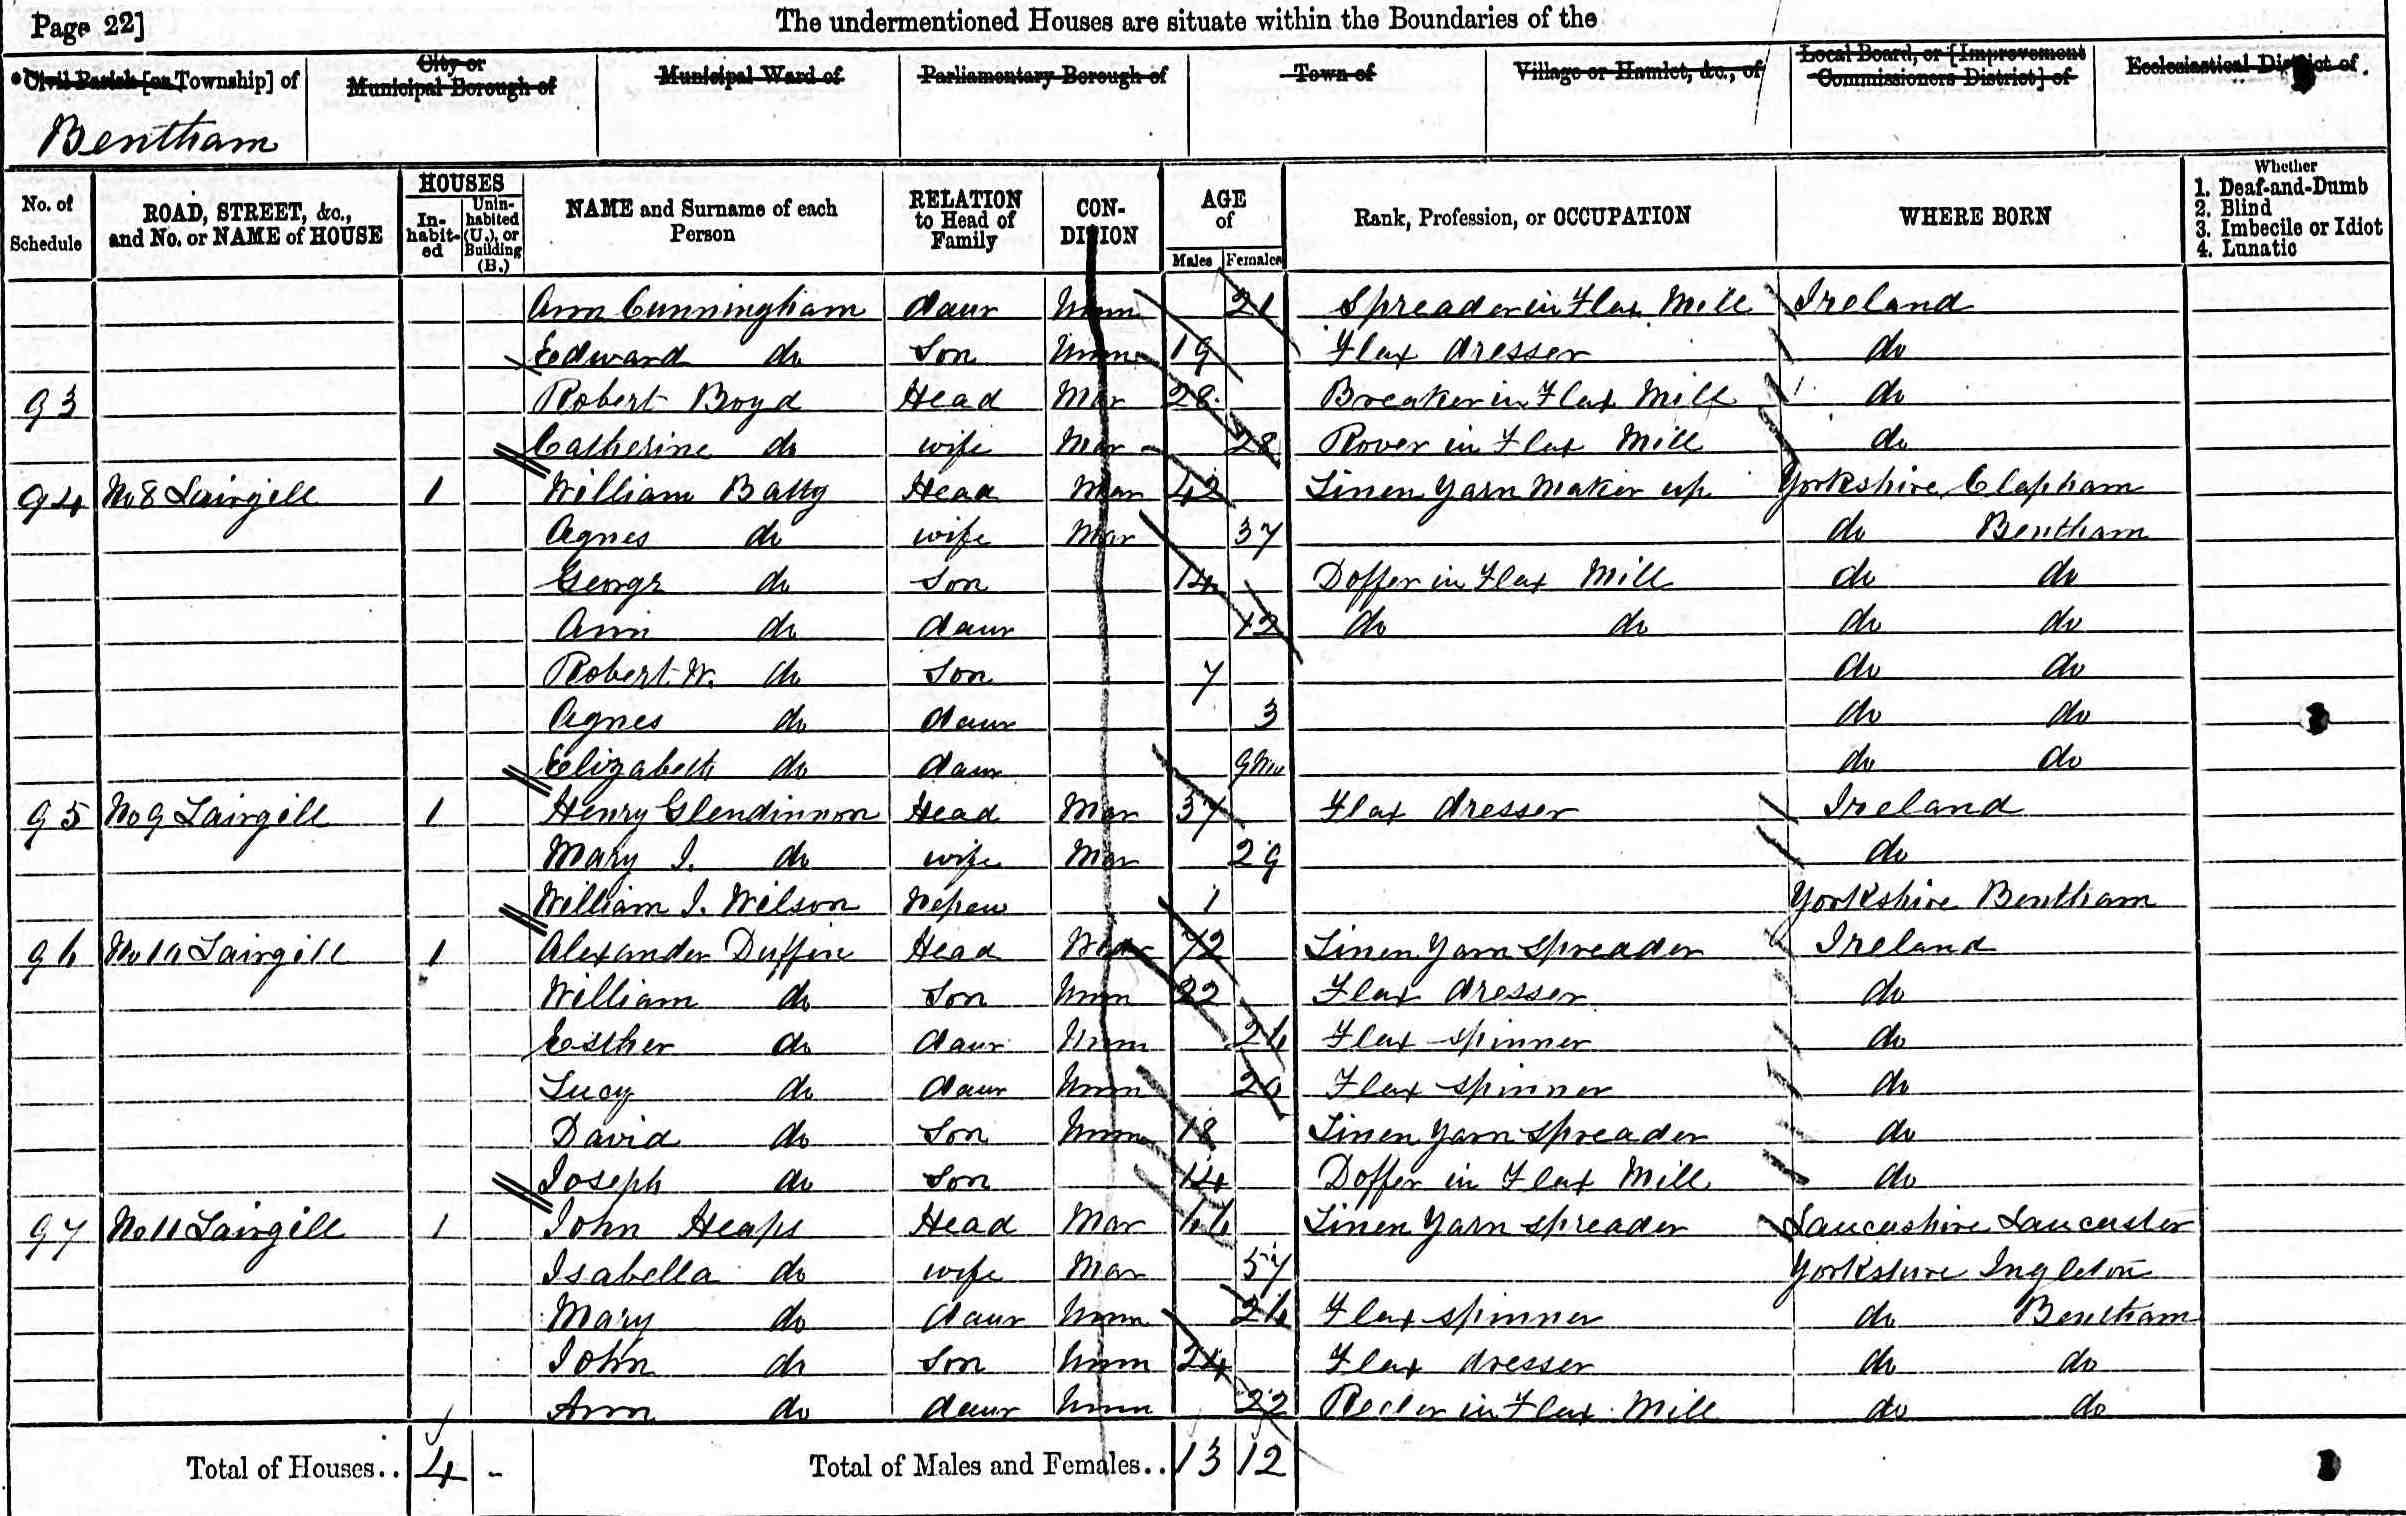 Page 22]
The undermentioned Houses are situate within the Boundaries of the
Civil Parish [or Township] of
City or Municipal Borough of
Municipal Ward of
Parliamentary Borough of
Town of
Village or Hamlet, &c., of
Local Board, or [Improvement Commissioners District] of
Ecclesiastical District of
Bentham
No. of Schedule
ROAD, STREET, &c., and No. or NAME of HOUSE
HOUSES
In-habit-ed
Unin-habited (U.), or Building (B.)
NAME and Surname of each Person
RELATION to Head of Family
CON-DITION
AGE of
Males Females
Rank, Profession, or OCCUPATION
WHERE BORN
Whether
1. Deaf-and-Dumb
2. Blind
3. Imbecile or Idiot
4. Lunatic
Ann Cunningham daur Unm 21 Spreader in Flax Mill Ireland
Edward do Son Unm 19 Flax dresser do
93 Robert Boyd Head Mar 28 Breaker in Flax Mill do
Catherine do wife Mar 28 Rover in Flax Mill do
94 No 8 Lairgill 1 William Batty Head Mar 42 Linen Yarn Maker up Yorkshire Clapham
Agnes do wife Mar 37 do Bentham
George do Son 14 Doffer in Flax Mill do do
Ann do daur 12 do do do do
Robert W. do Son 7 do do
Agnes do daur 3 do do
Elizabeth do daur 9 Mo do do
95 No 9 Lairgill 1 Henry Glendinnon Head Mar 37 Flax dresser Ireland
Mary J. do wife Mar 29 do
William J. Wilson Nepew 1 Yorkshire Bentham
96 No 10 Lairgill 1 Alexander Duffin Head 72 Linen Yarn Spreader Ireland
William do Son Unm 22 Flax dresser do
Esther do daur Unm 26 Flax spinner do
Lucy do daur Unm 20 Flax spinner do
David do Son Unm 18 Linen Yarn Spreader do
Joseph do Son 14 Doffer in Flax Mill do
97 No 11 Lairgill 1 John Heaps Head Mar 66 Linen Yarn spreader Lancashire Lancaster
Isabella do wife Mar 57 Yorkshire Ingleton
Mary do daur Unm 26 Flax spinner do Bentham
John do Son Unm 24 Flax dresser do do
Ann do daur Unm 22 Reeler in Flax Mill do do
Total of Houses.. 4 - Total of Males and Females.. 13 12